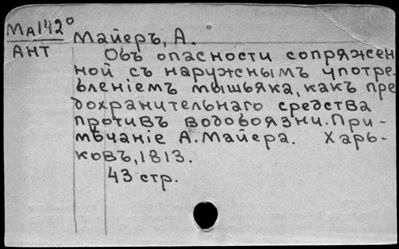 Ма142⁰
Майеръ, А.
АНТ
Объ опасности сопряжен
ной съ наружнымъ употре-
бленіемъ мышьяка, какъ пре
дохранительнаго средства
противъ водобоязни. При-
мѣчаніе А. Майера. Харь-
ковъ, 1813.
43 стр.